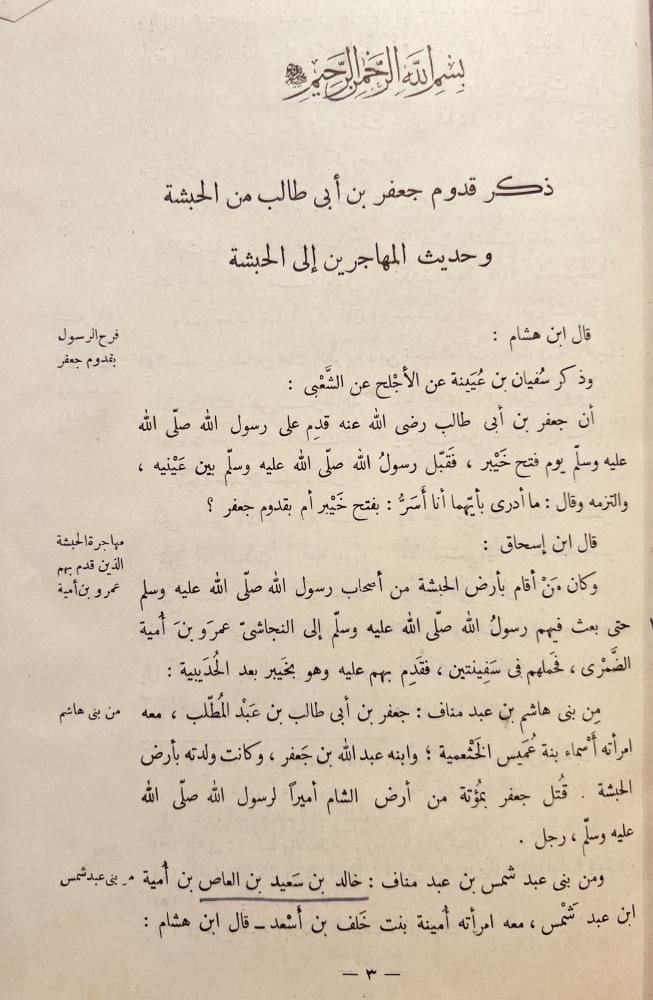 بِسْمِ اللَّهِ الرَّحْمٰنِ الرَّحِيمِ
ذكر قدوم جعفر بن أبى طالب من الحبشة
وحديث المهاجرين إلى الحبشة
فرح الرسول
بقدوم جعفر
قال ابن هشام :
وذكر سُفيان بن عُيَينة عن الأجْلح عن الشَّعْبى :
أن جعفر بن أبى طالب رضى الله عنه قدِم على رسول الله صلّى الله
عليه وسلّم يوم فتح خَيْبر ، فَقَبّل رسولُ الله صلّى الله عليه وسلّم بين عَيْنيه ،
والتزمه وقال : ما أدرى بأيّهما أنا أَسَرُّ : بفتح خَيْبر أم بقدوم جعفر ؟
مهاجرة الحبشة
الذين قدم بهم
عمرو بن أمية
قال ابن إسحاق :
وكان مَنْ أقام بأرض الحبشة من أصحاب رسول الله صلّى الله عليه وسلم
حتى بعث فيهم رسولُ الله صلّى الله عليه وسلّم إلى النجاشىّ عمرَو بنَ أُمية
الضَّمْرى ، فحَملهم فى سَفِينتين ، فقَدِم بهم عليه وهو بخَيبر بعد الحُدَيبية :
من بنى هاشم
مِن بنى هاشم بن عبد مناف : جعفر بن أبى طالب بن عَبْد المُطّلب ، معه
امرأته أَسْماء بنة عُمَيس الخَثْعمية ؛ وابنه عبد الله بن جَعفر ، وكانت ولدته بأرض
الحبشة . قُتل جعفر بمُؤتة من أرض الشام أميراً لرسول الله صلّى الله
عليه وسلّم ، رجل .
من بنى عبد شمس
ومن بنى عبد شمس بن عبد مناف : خالد بن سَعيد بن العاص بن أُمية
ابن عبد شَمْس ، معه امرأته أُمينة بنت خَلف بن أَسْعد ــ قال ابن هشام :
— ٣ —